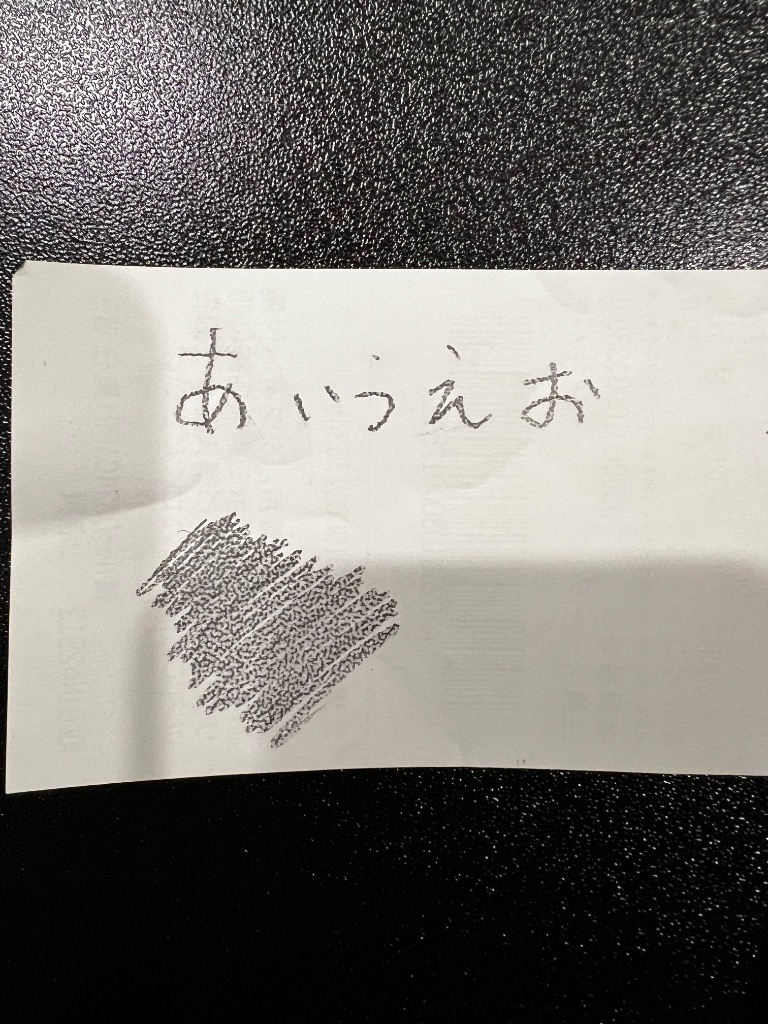 あいうえお